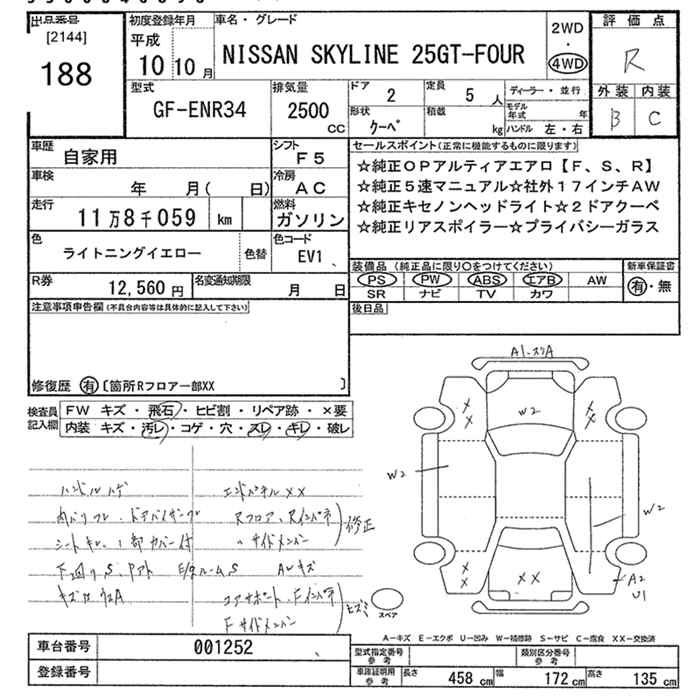 出品番号
[2144]
188
初度登録年月
平成
10 10 月
車名・グレード
NISSAN SKYLINE 25GT-FOUR
2WD
・
4WD
評価点
R
外装 内装
B C
型式
GF-ENR34
排気量
2500
CC
ドア
2
定員
5 人
形状
クーペ
積載
kg
ディーラー・並行
モデル年式 年
ハンドル 左・右
車歴
自家用
シフト
F5
車検
年 月( 日)
冷房
AC
走行
11万8千059 km
燃料
ガソリン
色
ライトニングイエロー
色替
色コード
EV1
R券
12,560 円
名変通知期限
月 日
セールスポイント(正常に機能するものに限ります)
☆純正OPアルティアエアロ【F、S、R】
☆純正5速マニュアル☆社外17インチAW
☆純正キセノンヘッドライト☆2ドアクーペ
☆純正リアスポイラー☆プライバシーガラス
装備品 (純正品に限り○をつけてください)
新車保証書
PS PW ABS エアB AW
SR ナビ TV カワ
有・無
後日品
注意事項申告欄(不具合内容等は具体的に記入して下さい)
修復歴 有 [箇所Rフロアー部XX ]
検査員記入欄
FW キズ・飛石・ヒビ割・リペア跡・×要
内装 キズ・汚レ・コゲ・穴・スレ・キレ・破レ
ハンドルハゲ
エンドパネルXX
Rフロア、Rインパネ
修正
シートキレ、1部カバー付
サイドメンバー
下回りS
E/gルームS
コアサポート、Fインパネ
Fサイドメンバー
A1
W2
W2
W2
XX
A2
U1
スペア
A-キズ E-エクボ U-凹み W-補修跡 S-サビ C-腐食 XX-交換済
車台番号
001252
登録番号
型式指定番号
参考
類別区分番号
参考
車庫証明用
参考
長さ 458 cm 幅 172 cm 高さ 135 cm